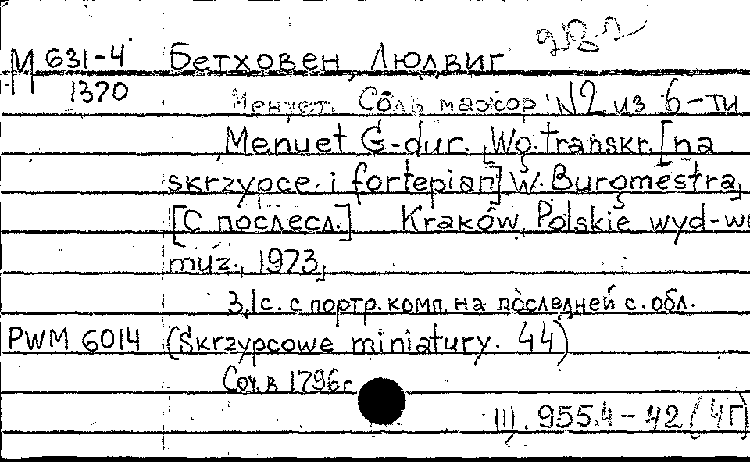 М 631-4 Бетховен, Людвиг
1370 Менует. Соль мажор N2 из 6-ти
Menuet G-dur. Wg. transkr. [na
skrzypce i fortepian] W. Burgmestra,
[С послесл.] Kraków, Polskie wyd-wo
muz., 1973,
3,1с. с портр. комп. на последней с. обл.
PWM 6014 (Skrzypcowe miniatury. 44)
Соч. в 1796г
III. 955.4-42 (4Г)